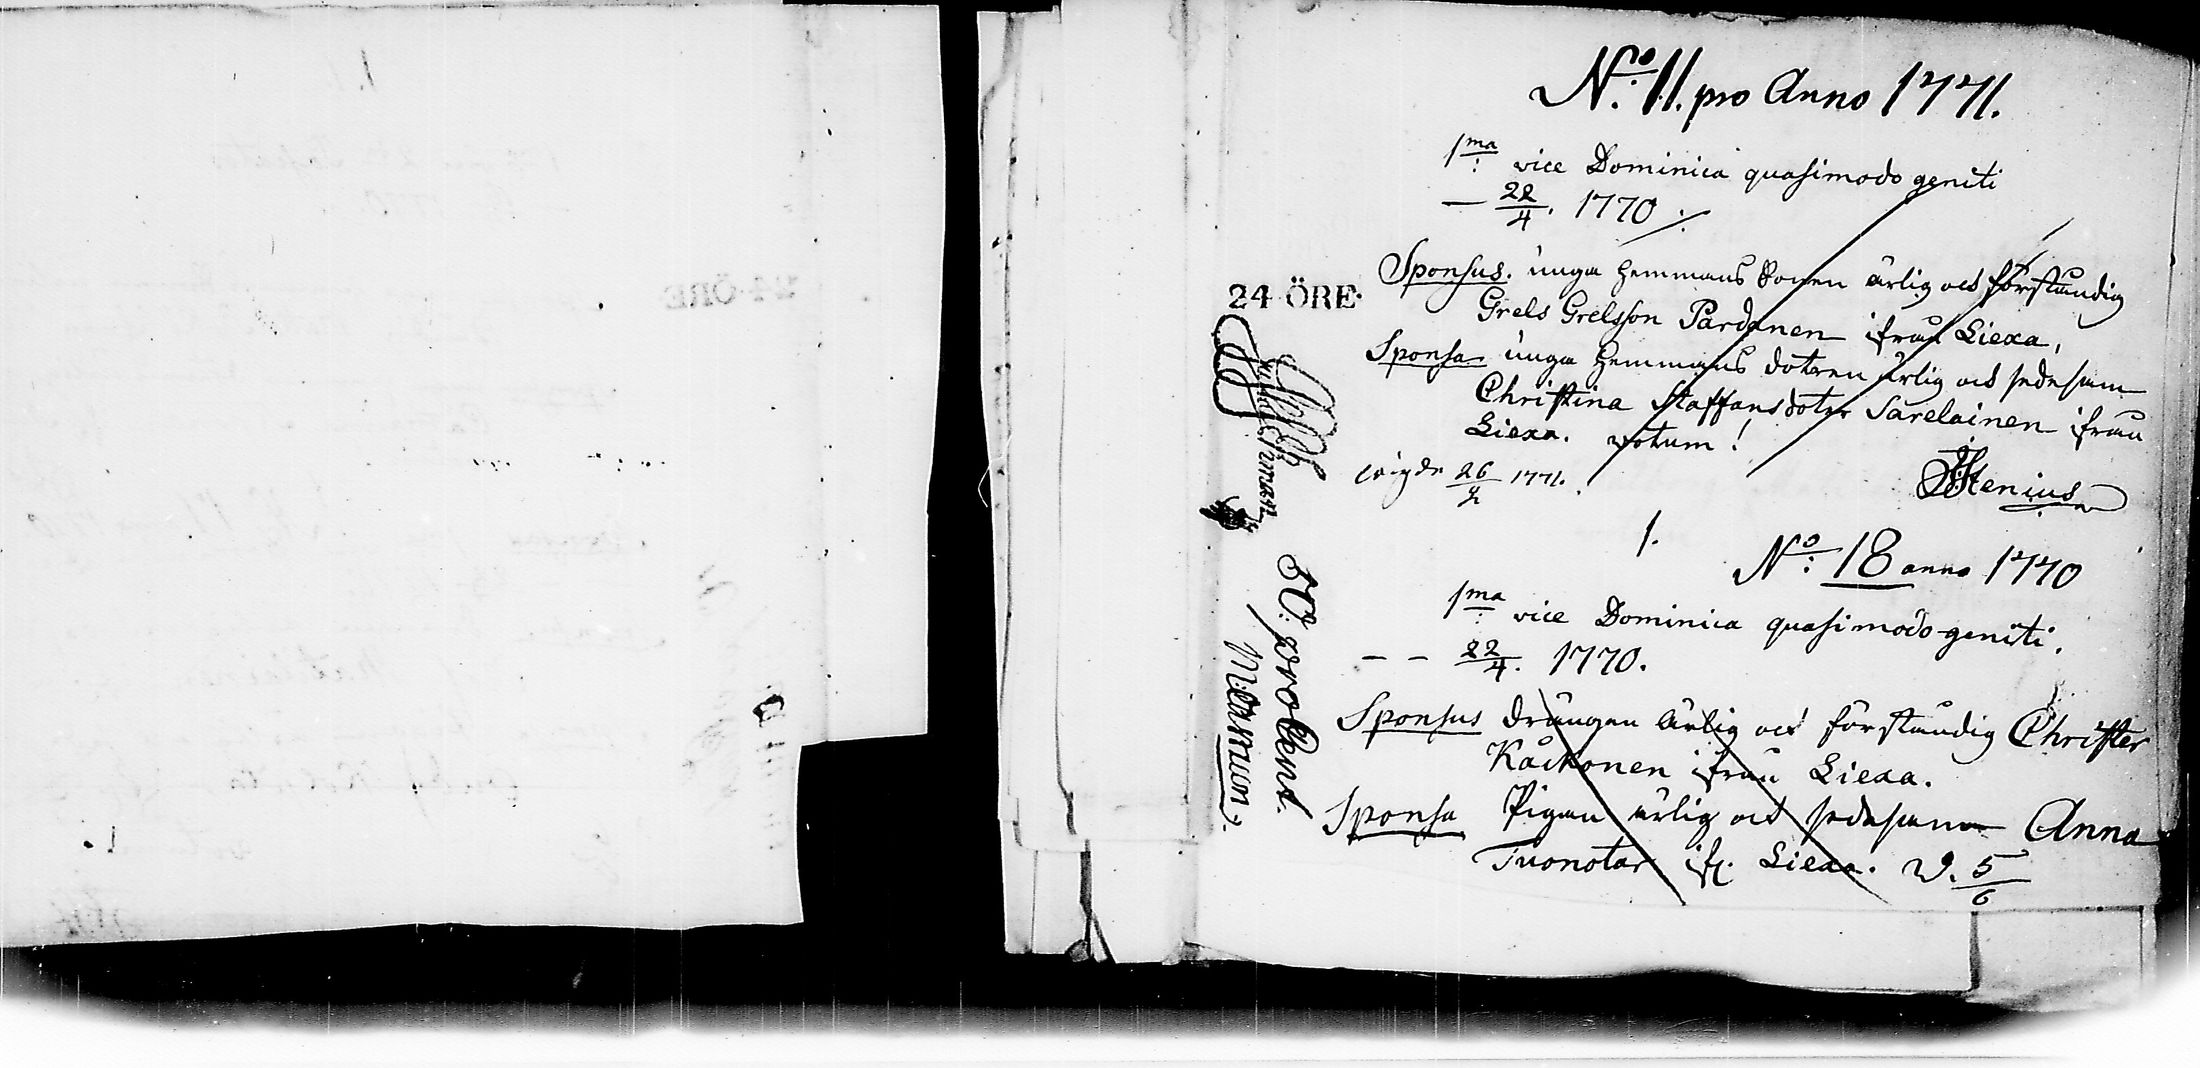 No: 11. pro Anno 1771.
1ma vice Dominica quasimodo geniti
— 22/4. 1770 ./.
24 ÖRE.
Sponsus. unga hemmans Sonen ärlig och förståndig
Grels Grelsson Pardanen ifrån Liexa,
Sponsa unga hemmans dotren ärlig och sedesam
Christina Staffansdoter Sarelainen ifrån
Liexa. votum!
wigde 26/2 1771.
JStenius
1.
No: 18 anno 1770
1ma vice Dominica quasimodo geniti.
— — 22/4. 1770.
Sponsus drängen ärlig och förståndig Christer
Kaikonen ifrån Liexa.
Sponsa Pigan ärlig och sedesam Anna
Tuonotar ifr. Liexa. V. 5/6